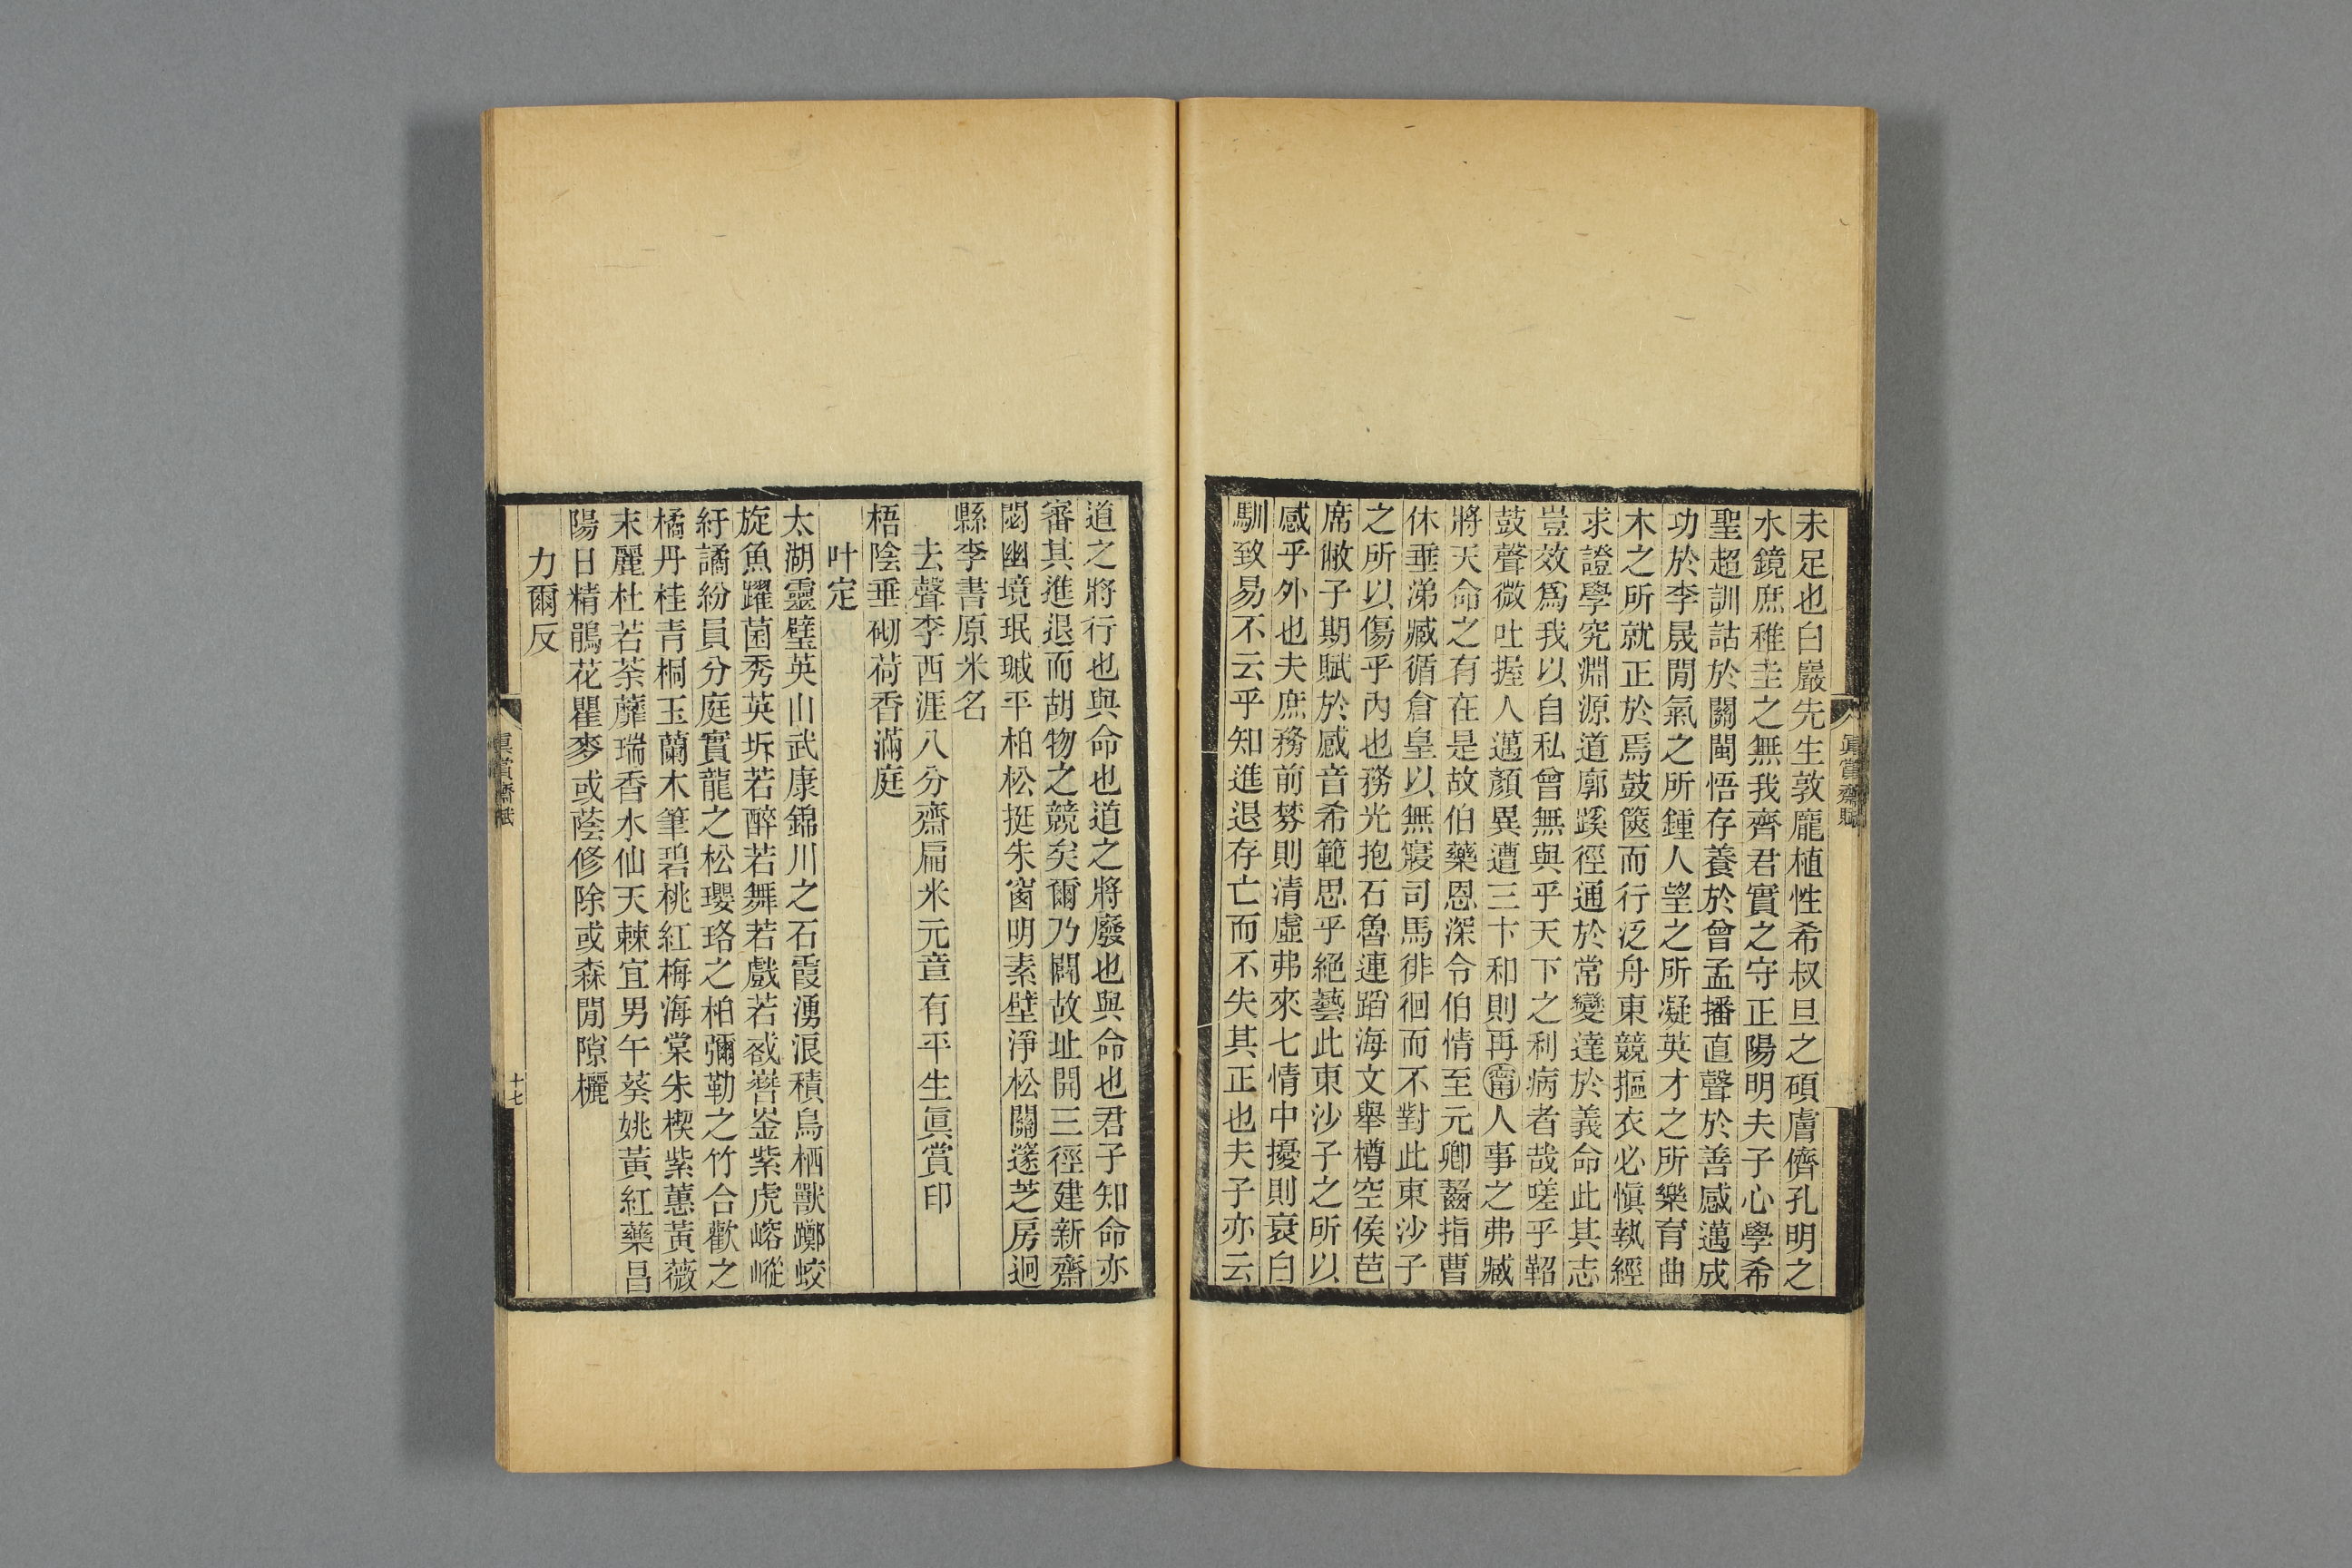 未足也白巖先生敦龐植性希叔旦之碩膚儕孔明之
水鏡庶稚圭之無我齊君實之守正陽明夫子心學希
聖超訓詁於關閩悟存養於曾孟播直聲於善感邁成
功於李晟閒氣之所鍾人望之所凝英才之所樂育曲
木之所就正於焉鼓篋而行泛舟東競摳衣必愼執經
求證學究淵源道廓蹊徑通於常變達於義命此其志
豈效爲我以自私曾無與乎天下之利病者哉嗟乎鞀
鼓聲微吐握人邁顏異遭三卞和則再甯人事之弗臧
將天命之有在是故伯藥恩深令伯情至元卿齧指曹
休垂涕臧循倉皇以無寢司馬徘徊而不對此東沙子
之所以傷乎內也務光抱石魯連蹈海文舉樽空侯芭
席敝子期賦於感音希範思乎絕藝此東沙子之所以
感乎外也夫庶務前棼則清虛弗來七情中擾則衰白
馴致易不云乎知進退存亡而不失其正也夫子亦云
眞賞齋賦
道之將行也與命也道之將廢也與命也君子知命亦
審其進退而胡物之競矣爾乃闢故址開三徑建新齋
閟幽境珉瓀平柏松挺朱窗明素壁淨松關邃芝房迥
縣李書原米名
去聲李西涯八分齋扁米元章有平生眞賞印
梧陰垂砌荷香滿庭
叶定
太湖靈璧英山武康錦川之石霞湧浪積鳥栖獸躑蛟
旋魚躍菌秀英坼若醉若舞若戲若惑礐崟紫虎嵱嵷
紆譎紛員分庭實龍之松瓔珞之柏彌勒之竹合歡之
橘丹桂青桐玉蘭木筆碧桃紅梅海棠朱楔紫蕙黃薇
末麗杜若荼蘼瑞香水仙天棘宜男午葵姚黃紅藥昌
陽日精鵑花瞿麥或蔭修除或森閒隙欐
力爾反
眞賞齋賦
十七